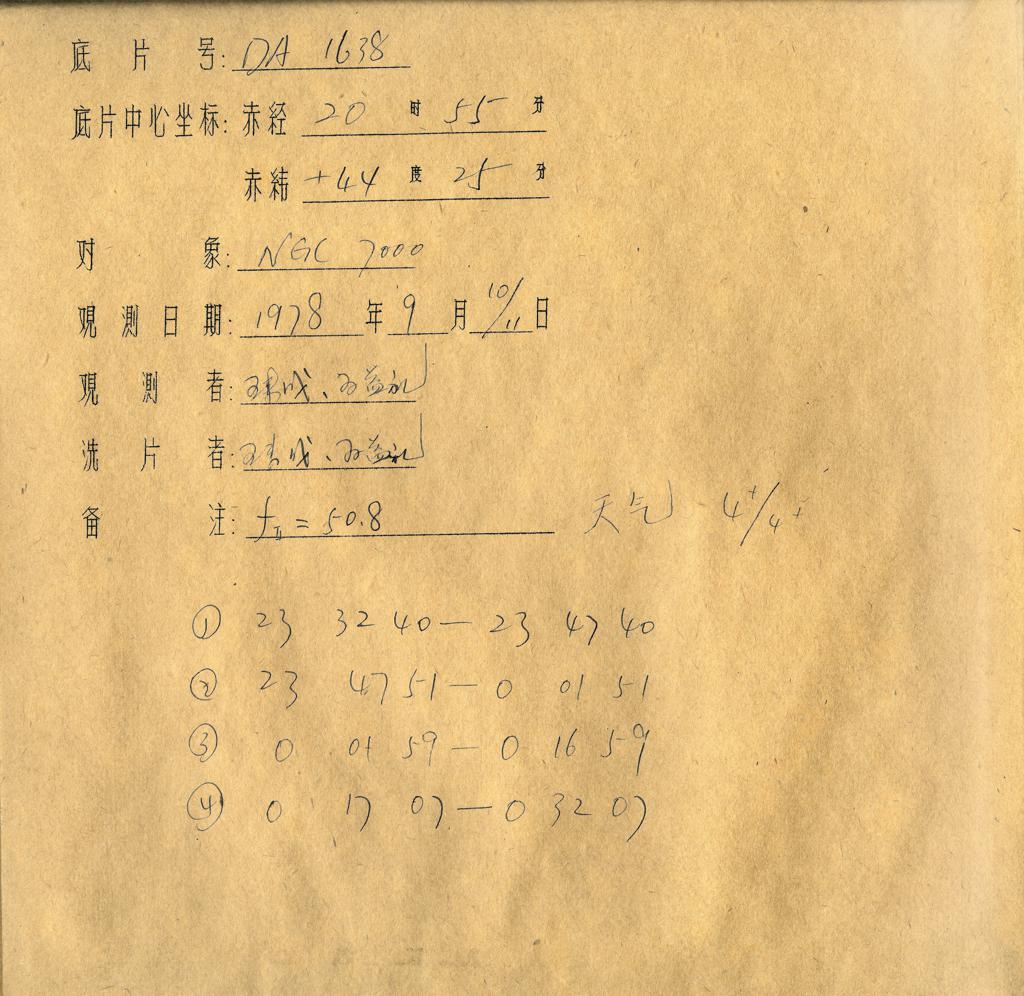 底片号: DA 1638
底片中心坐标: 赤经 20 时 55 分
赤纬 +44 度 25 分
对象: NGC 7000
观测日期: 1978 年 9 月 10/11 日
观测者:
洗片者:
备注: fⅡ = 50.8 天气 4+/4+
① 23 32 40 — 23 47 40
② 23 47 51 — 0 01 51
③ 0 01 59 — 0 16 59
④ 0 17 07 — 0 32 07